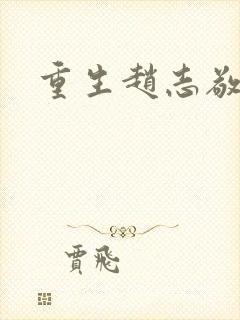 重生趙志敬
賈飛